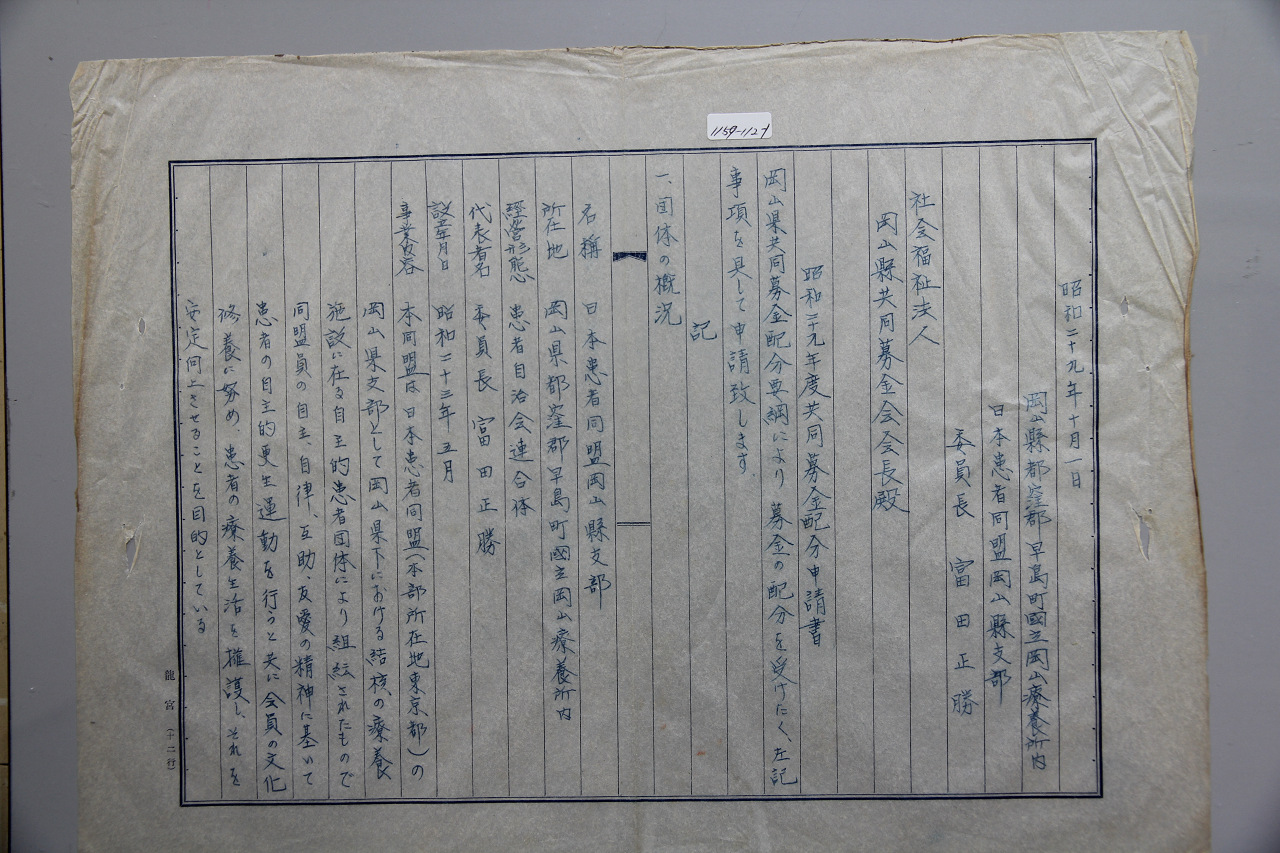 1159-1127
昭和二十九年十月一日
岡山縣都窪郡早島町國立岡山療養所内
日本患者同盟岡山縣支部
委員長 富田正勝
社会福祉法人
岡山縣共同募金会会長殿
昭和二十九年度共同募金配分申請書
岡山県共同募金配分要綱により募金の配分を受けたく、左記
事項を具して申請致します
記
一、団体の概況
名稱 日本患者同盟岡山縣支部
所在地 岡山県都窪郡早島町國立岡山療養所内
経営形態 患者自治会連合体
代表者名 委員長 富田正勝
設立年月日 昭和二十三年五月
事業内容 本同盟は日本患者同盟(本部所在地東京都)の
岡山県支部として岡山県下における結核の療養
施設に在る自主的患者団体により組織されたもので
同盟員の自主、自律、互助、友愛の精神に基いて
患者の自主的更生運動を行うと共に会員の文化
修養に努め、患者の療養生活を擁護し、それを
安定向上させることを目的としている
龍宮(十二行)